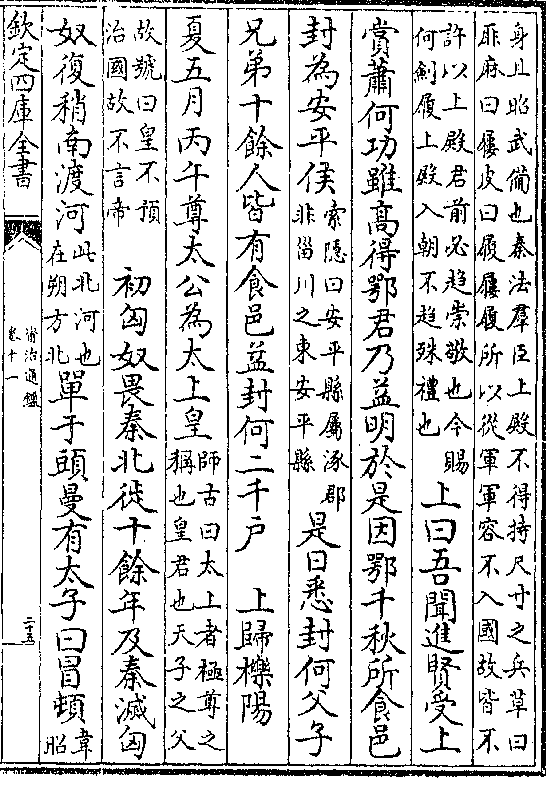 身且昭武備也秦法羣臣上殿不得持尺寸之兵草曰
屝麻曰屨皮曰履屨履所以從軍軍容不入國故皆不
許以上殿君前必趨崇敬也今賜
何劒履上殿入朝不趨殊禮也
上曰吾聞進賢受上
賞蕭何功雖高得鄂君乃益明於是因鄂千秋所食邑
封為安平侯
索隱曰安平縣屬涿郡
非甾川之東安平縣
是日悉封何父子
兄弟十餘人皆有食邑益封何二千户　上歸櫟陽
夏五月丙午尊太公為太上皇
師古曰太上者極尊之
稱也皇君也天子之父
故號曰皇不預
治國故不言帝
初匈奴畏秦北徙十餘年及秦滅匈
奴復稍南渡河
此北河也
在朔方北
單于頭曼有太子曰冒頓
韋
昭
欽定四庫全書
資治通鑑
卷十一
二十五